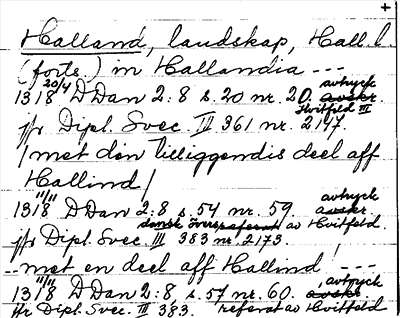 +
Halland, landskap, Hall. l.
(forts.) in Hallandia ---
1318 20/4 D Dan 2:8 s. 20 nr. 20. avtryck Hvitfeld III
jfr Dipl. Svec III 361 nr. 2147.
/met den tilliggendis deel aff
Hallind/
1318 11/11 D Dan 2:8, s. 54 nr. 59 avtryck
dansk övers av Hvitfeld.
jfr Dipl. Svec III 383 nr. 2173.
.. met en deel aff Hallind ---
1318 11/11 D Dan 2:8, s. 57 nr. 60. avtryck
jfr Dipl. Svec. III 383. referat av Hvitfeld